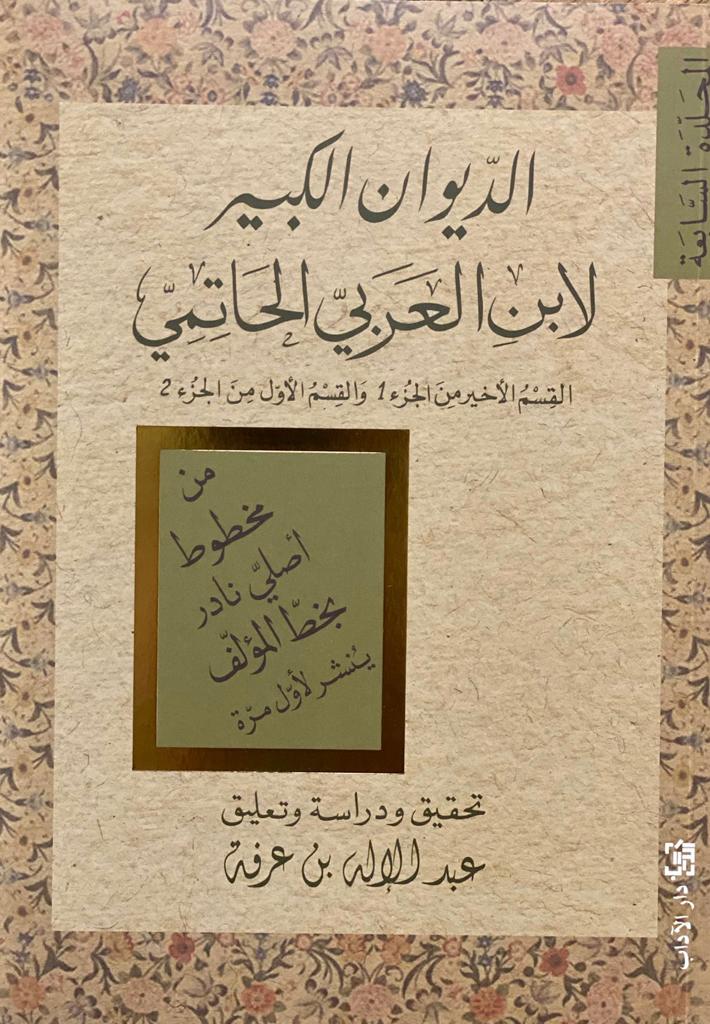 المجلّدة السّابعة
الدّيوان الكبير
لابنِ العَرَبيّ الحَاتِميّ
القِسْمُ الأخير مِنَ الجُزء 1 وَالقِسْمُ الأوّل مِنَ الجُزء 2
من
مخطوط
أصليّ نادر
بخطّ المؤلّف
يُنشر لأوّل مرّة
تحقيق ودراسة وتعليق
عبد الإله بن عرفة
دار الآداب